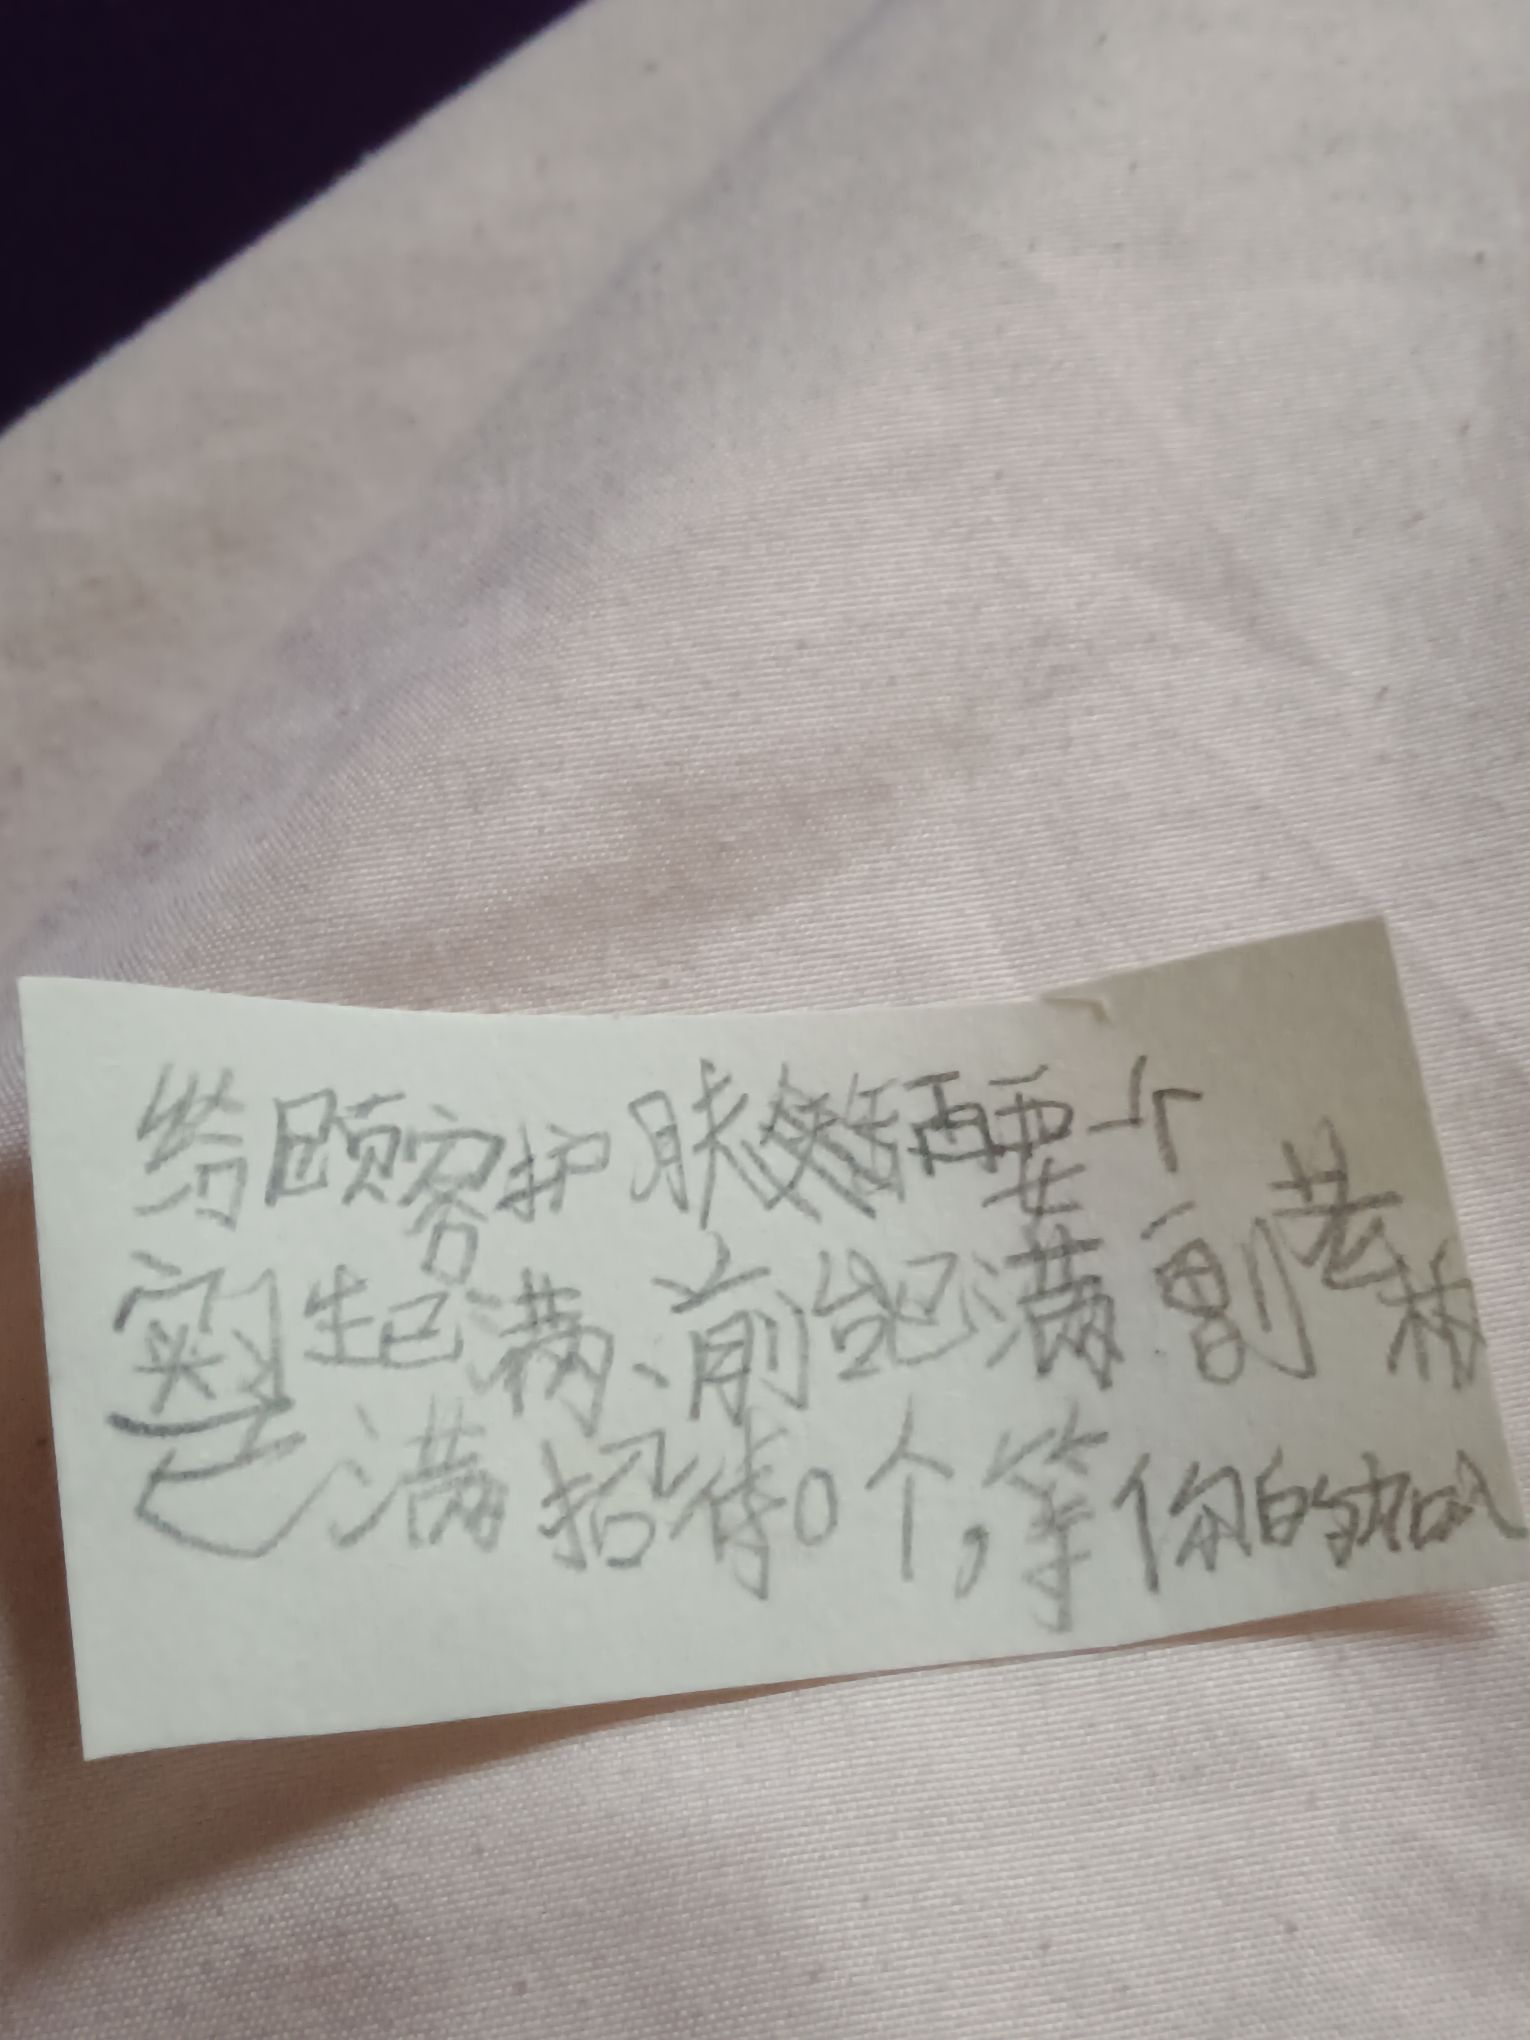 给顾客护肤 要个
实习生已满、前台已满 副老板
已满 招待0个，等你的加入